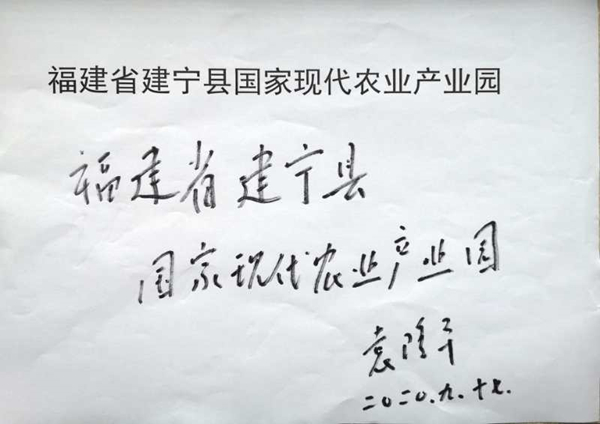 福建省建宁县国家现代农业产业园
福建省建宁县
国家现代农业产业园
袁隆平
二〇二〇.九.十七.